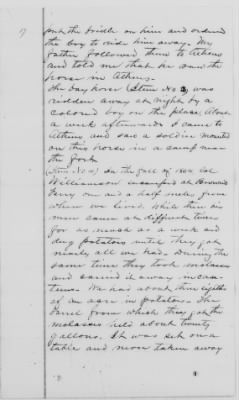 7
put the bridle on him and ordered
the boy to ride him away. My
father followed them to Athens
and told me that he saw the
horse in Athens.
The bay horse (Item No 3) was
ridden away at night by a
colored boy on the place. About
a week afterwards I came to
Athens and saw a soldier mounted
on this horse in a camp near
the fort.
(Item No 10) In the fall of 1864 Col
Williamson encamped at Brown's
Ferry one and a half miles from
where we lived. While there his
men came at different times
for as much as a week and
dug potatoes until they got
nearly all we had. During the
same time they took molasses
and carried it away in can-
teens. We had about three eighths
of an acre in potatoes. The
barrel from which they got the
molasses held about twenty
gallons. It was set on a
table and never taken away